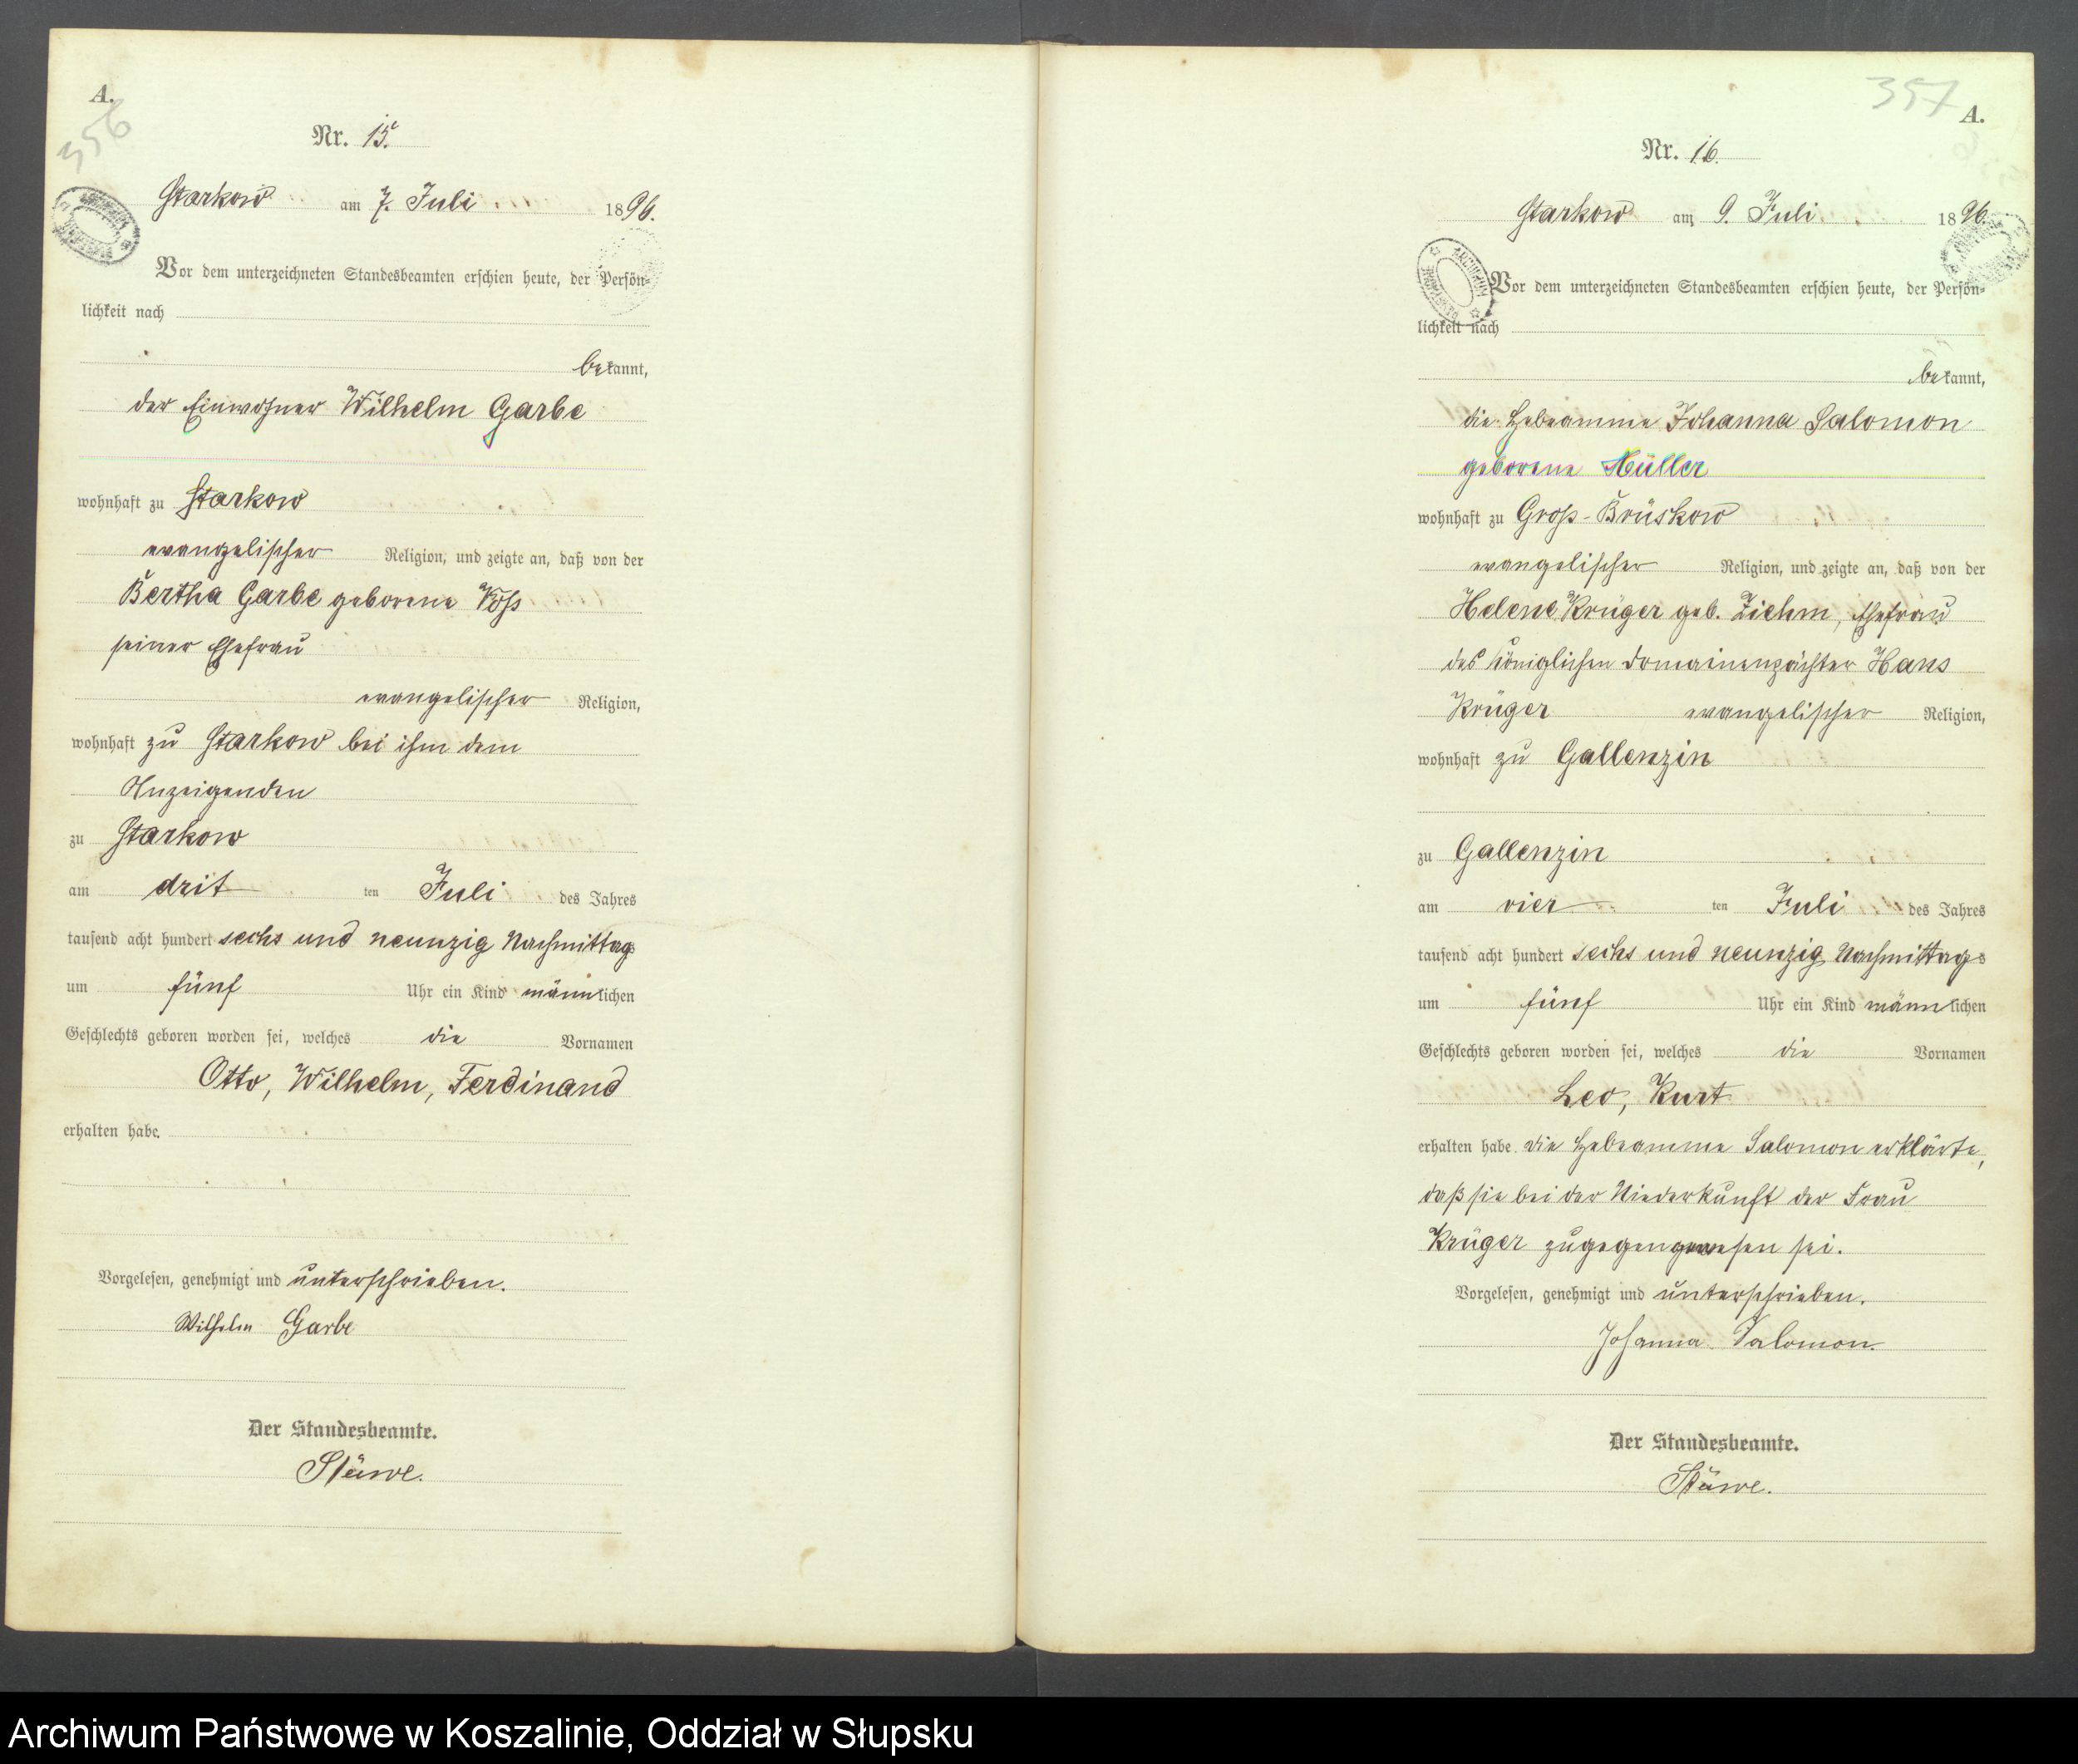 A.
356
Nr. 15.
Starkow am 7. Juli 1896.
Vor dem unterzeichneten Standesbeamten erschien heute, der Persön-
lichkeit nach
bekannt,
der Einwohner Wilhelm Garbe
wohnhaft zu Starkow
evangelischer Religion, und zeigte an, daß von der
Bertha Garbe geborene Voß
seiner Ehefrau
evangelischer Religion,
wohnhaft zu Starkow bei ihm dem
Anzeigenden
zu Starkow
am drit ten Juli des Jahres
tausend acht hundert sechs und neunzig Nachmittags
um fünf Uhr ein Kind männlichen
Geschlechts geboren worden sei, welches die Vornamen
Otto, Wilhelm, Ferdinand
erhalten habe.
Vorgelesen, genehmigt und unterschrieben.
Wilhelm Garbe
Der Standesbeamte.
Stüwe.
357
A.
Nr. 16.
Starkow am 9. Juli 1896.
Vor dem unterzeichneten Standesbeamten erschien heute, der Persön-
lichkeit nach
bekannt,
die Hebeamme Johanna Salomon
geborene Müller
wohnhaft zu Groß-Brüskow
evangelischer Religion, und zeigte an, daß von der
Helene Krüger geb. Ziehm, Ehefrau
des königlichen Domainenpächter Hans
Krüger evangelischer Religion,
wohnhaft zu Gallenzin
zu Gallenzin
am vier ten Juli des Jahres
tausend acht hundert sechs und neunzig Nachmittags
um fünf Uhr ein Kind männlichen
Geschlechts geboren worden sei, welches die Vornamen
Leo, Kurt
erhalten habe. Die Hebeamme Salomon erklärte,
daß sie bei der Niederkunft der Frau
Krüger zugegen gewesen sei.
Vorgelesen, genehmigt und unterschrieben.
Johanna Salomon.
Der Standesbeamte.
Stüwe.
Archiwum Państwowe w Koszalinie, Oddział w Słupsku